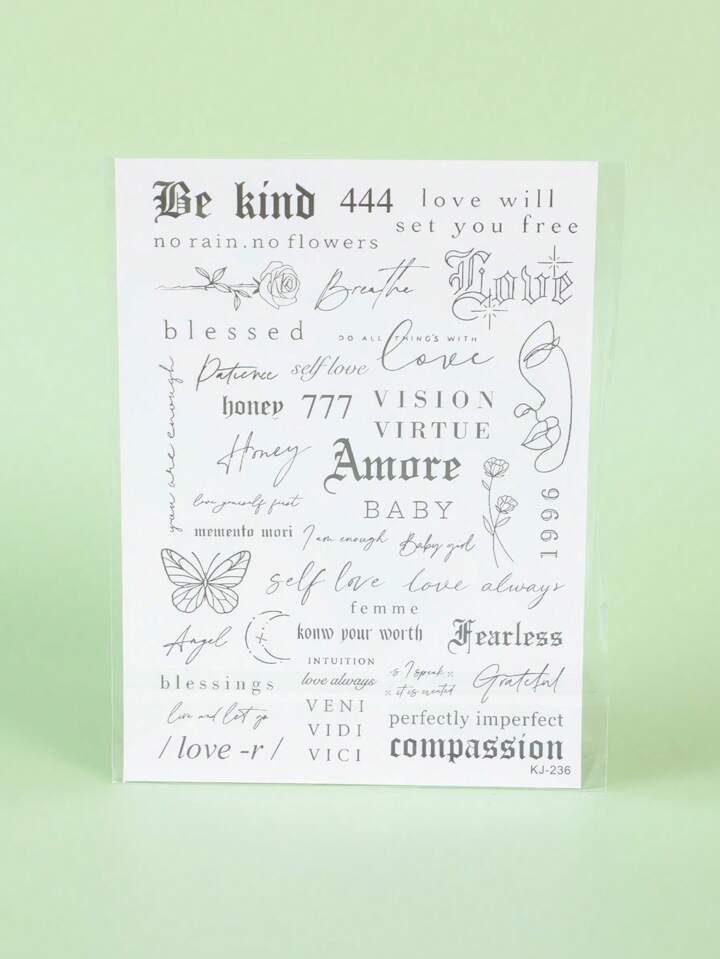 Be kind
444
love will
set you free
no rain.no flowers
Breathe
Love
blessed
DO ALL THING'S WITH
love
Patience
self love
you are enough
honey
777
VISION
VIRTUE
Honey
Amore
love yourself first
BABY
1996
memento mori
I am enough
Baby girl
self love
love always
femme
Angel
konw your worth
Fearless
INTUITION
blessings
love always
as I speak
it is created
Grateful
live and let go
VENI
VIDI
VICI
perfectly imperfect
/ love -r /
compassion
KJ-236